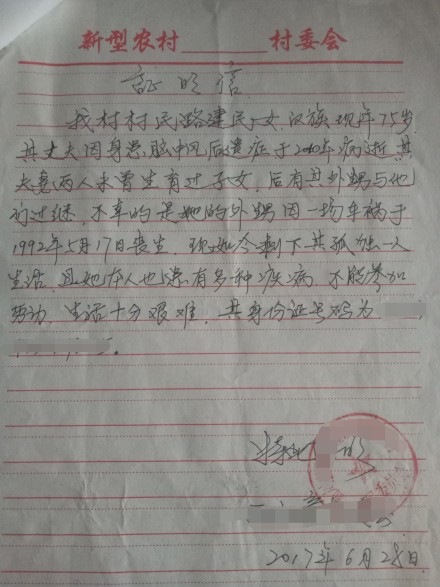 新型农村 村委会
证明信
我村村民路建民,女,汉族,现年75岁
其丈夫因身患脑中风后遗症于2010年病逝,其
夫妻两人未曾生育过子女,后有其外甥与他
们过继,不幸的是她的外甥因一场车祸于
1992年5月17日丧生,现如今剩下其孤独一人
生活,且她本人也患有多种疾病,不能参加
劳动,生活十分艰难,其身份证号码为
特此证明
2017年6月28日